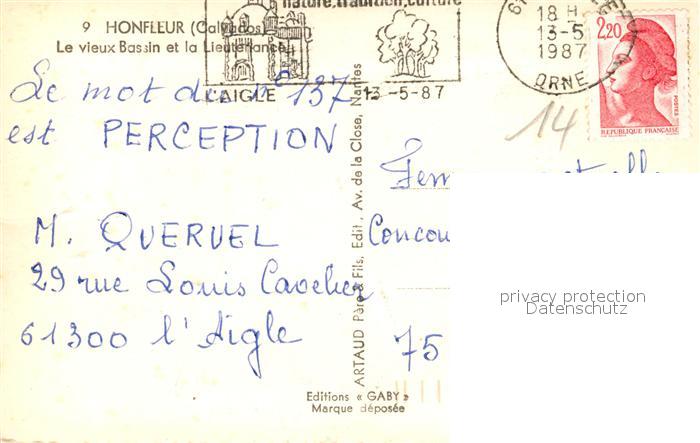 9 HONFLEUR (Calvados)
Le vieux Bassin et la Lieutenance
nature, tradition, culture
L'AIGLE
13-5-87
18 H
13-5
1987
ORNE
2,20
POSTES
REPUBLIQUE FRANÇAISE
14
Le mot du n° 137
est PERCEPTION
M. QUERUEL
29 rue Louis Cavelier
61300 l'Aigle
ARTAUD Père & Fils, Edit., Av. de la Close, Nantes
75
privacy protection
Datenschutz
Editions « GABY »
Marque déposée